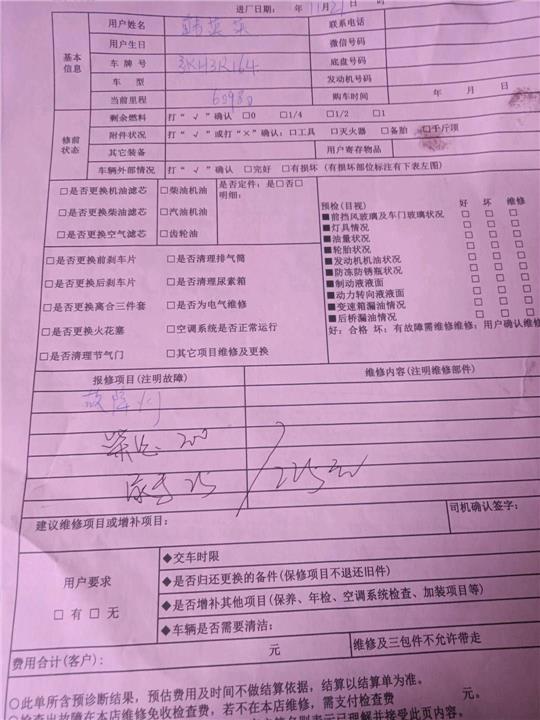 进厂日期: 年 11月21日 时
基本信息
用户姓名 联系电话
用户生日 微信号码
车 牌 号 3KH3R164 底盘号码
车 型 发动机号码
当前里程 60980 购车时间 年 月 日
修前状态
剩余燃料 打“√”确认 □0 □1/4 □1/2 □1
附件状况 打“√”或打“×”确认:□工具 □灭火器 □备胎 □千斤顶
其它装备 用户寄存物品
车辆外部情况 打“√”确认 □完好 □有损坏(有损坏部位标注有下表左图)
□是否更换机油滤芯 □柴油机油 是否定件:是□否□
明细:
□是否更换柴油滤芯 □汽油机油
□是否更换空气滤芯 □齿轮油
预检(目视) 好 坏 维修
■前挡风玻璃及车门玻璃状况 □ □ □
■灯具情况 □ □ □
■油量状况 □ □ □
■轮胎状况 □ □ □
■发动机机油状况 □ □ □
■防冻防锈瓶状况 □ □ □
■制动液液面 □ □ □
■动力转向液液面 □ □ □
■变速箱漏油情况 □ □ □
■后桥漏油情况 □ □ □
好:合格 坏:有故障需维修维修:用户确认维修
□是否更换前刹车片 □是否清理排气筒
□是否更换后刹车片 □是否清理尿素箱
□是否更换离合三件套 □是否为电气维修
□是否更换火花塞 □空调系统是否正常运行
□是否清理节气门 □其它项目维修及更换
报修项目(注明故障) 维修内容(注明维修部件)
故障灯
200
25 225元
建议维修项目或增补项目: 司机确认签字:
用户要求
□有□无
◆交车时限
◆是否归还更换的备件(保修项目不退还旧件)
◆是否增补其他项目(保养、年检、空调系统检查、加装项目等)
◆车辆是否需要清洁:
费用合计(客户): 元 维修及三包件不允许带走
○此单所含预诊断结果,预估费用及时间不做结算依据,结算以结算单为准。
○检查出故障在本店维修免收检查费,若不在本店维修,需支付检查费 元。